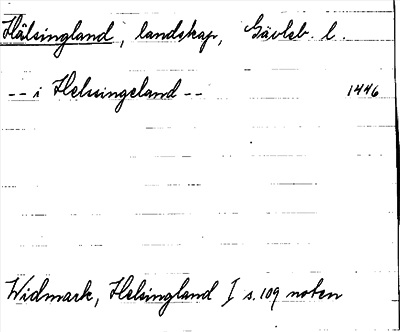 Hälsingland, landskap, Gävleb. l.
-- i Helsingeland -- 1446
Widmark, Helsingland I s. 109 noten